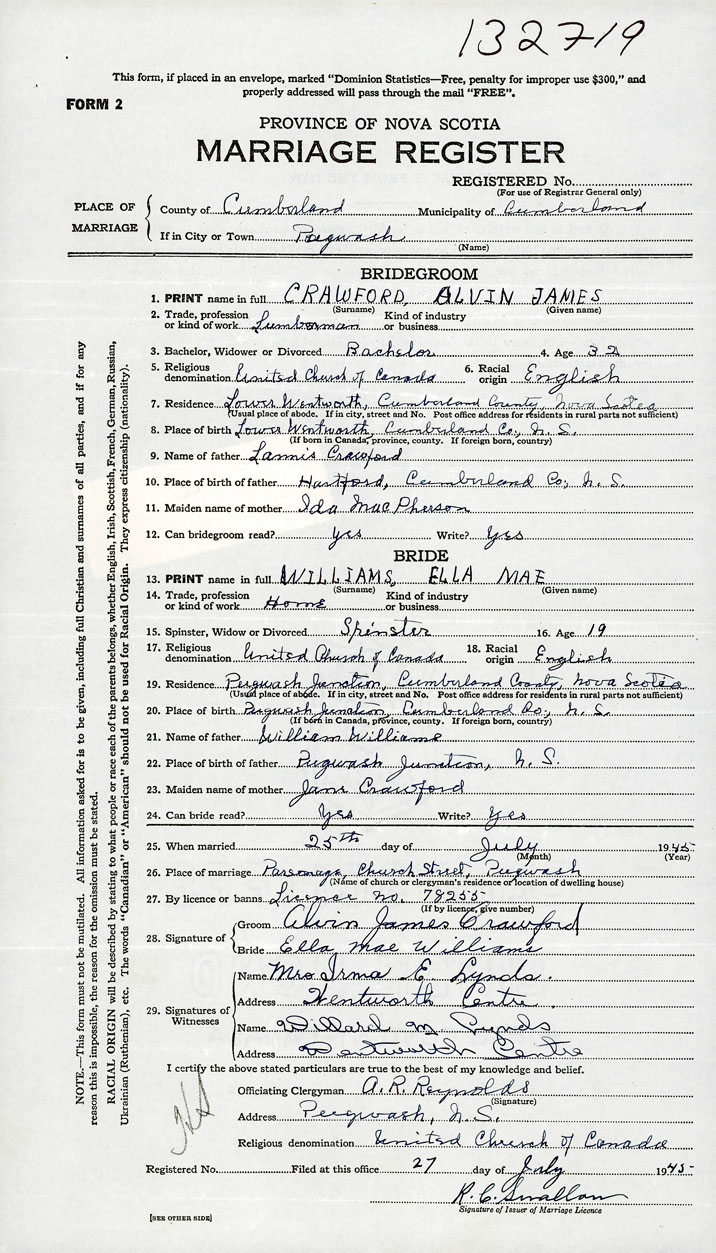 132719
This form, if placed in an envelope, marked “Dominion Statistics—Free, penalty for improper use $300,” and
properly addressed will pass through the mail “FREE”.
FORM 2
PROVINCE OF NOVA SCOTIA
MARRIAGE REGISTER
REGISTERED No.
(For use of Registrar General only)
PLACE OF MARRIAGE
County of Cumberland Municipality of Cumberland
If in City or Town Pugwash
(Name)
BRIDEGROOM
1. PRINT name in full CRAWFORD, ALVIN JAMES
(Surname) (Given name)
2. Trade, profession Kind of industry
or kind of work Lumberman or business
3. Bachelor, Widower or Divorced Bachelor 4. Age 32
5. Religious 6. Racial
denomination United Church of Canada origin English
7. Residence Lower Wentworth, Cumberland County, Nova Scotia
(Usual place of abode. If in city, street and No. Post office address for residents in rural parts not sufficient)
8. Place of birth Lower Wentworth, Cumberland Co., N. S.
(If born in Canada, province, county. If foreign born, country)
9. Name of father Lannis Crawford
10. Place of birth of father Hartford, Cumberland Co., N. S.
11. Maiden name of mother Ida MacPherson
12. Can bridegroom read? yes Write? yes
BRIDE
13. PRINT name in full WILLIAMS, ELLA MAE
(Surname) (Given name)
14. Trade, profession Kind of industry
or kind of work Home or business
15. Spinster, Widow or Divorced Spinster 16. Age 19
17. Religious 18. Racial
denomination United Church of Canada origin English
19. Residence Pugwash Junction, Cumberland County, Nova Scotia
(Usual place of abode. If in city, street and No. Post office address for residents in rural parts not sufficient)
20. Place of birth Pugwash Junction, Cumberland Co., N. S.
(If born in Canada, province, county. If foreign born, country)
21. Name of father William Williams
22. Place of birth of father Pugwash Junction, N. S.
23. Maiden name of mother Jane Crawford
24. Can bride read? Yes Write? Yes
25. When married 25th day of July 1945
(Month) (Year)
26. Place of marriage Parsonage, Church Street, Pugwash
(Name of church or clergyman's residence or location of dwelling house)
27. By licence or banns License no. 78255
(If by licence, give number)
28. Signature of
Groom Alvin James Crawford
Bride Ella Mae Williams
29. Signatures of Witnesses
Name Mrs Irma E. Lynds.
Address Wentworth Centre.
Name Willard M Lynds
Address Wentworth Centre
I certify the above stated particulars are true to the best of my knowledge and belief.
Officiating Clergyman A. R. Reynolds
(Signature)
Address Pugwash, N. S.
Religious denomination United Church of Canada
Registered No. Filed at this office 27 day of July 1945
R. C. Swallow
Signature of Issuer of Marriage Licence
[SEE OTHER SIDE]
NOTE.—This form must not be mutilated. All information asked for is to be given, including full Christian and surnames of all parties, and if for any
reason this is impossible, the reason for the omission must be stated.
RACIAL ORIGIN will be described by stating to what people or race each of the parents belongs, whether English, Irish, Scottish, French, German, Russian,
Ukrainian (Ruthenian), etc. The words “Canadian” or “American” should not be used for Racial Origin. They express citizenship (nationality).